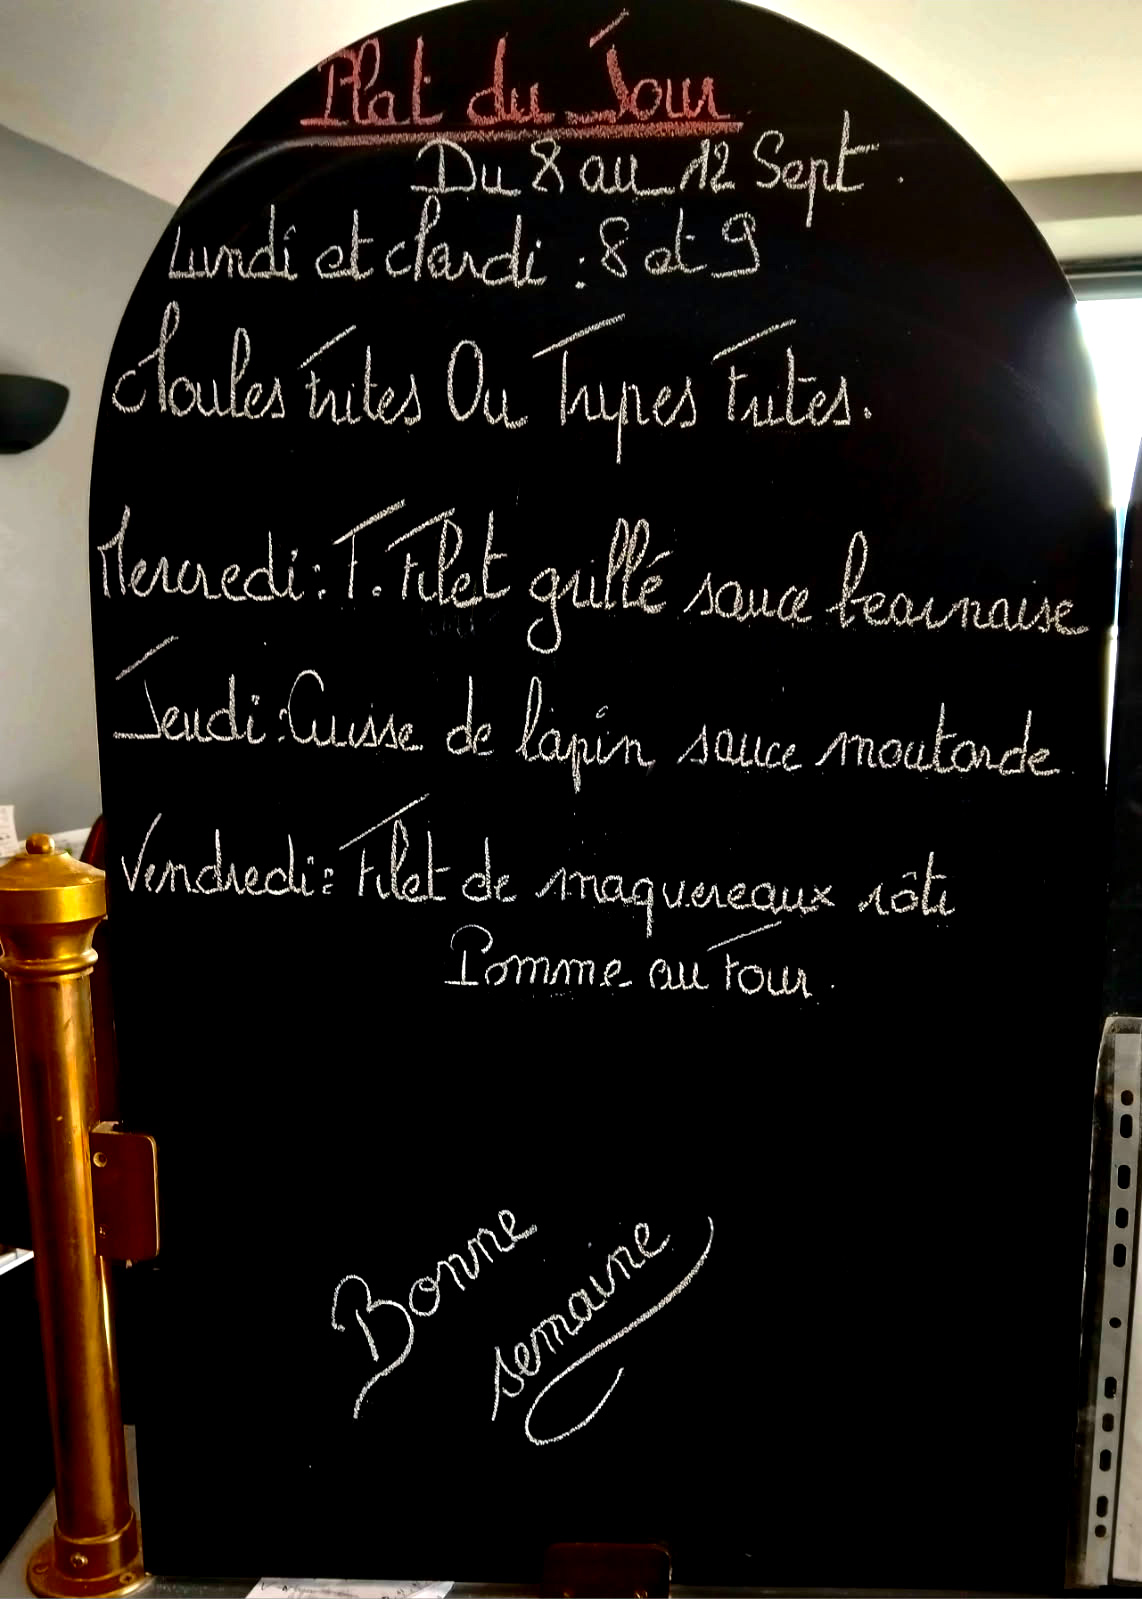 Plat du Jour
Du 8 au 12 Sept.
Lundi et Mardi : 8 et 9
Moules Frites Ou Tripes Frites.
Mercredi : F. Filet grillé sauce bearnaise
Jeudi : Cuisse de lapin sauce moutarde
Vendredi : Filet de maquereaux rôti
Pomme au Four.
Bonne
semaine